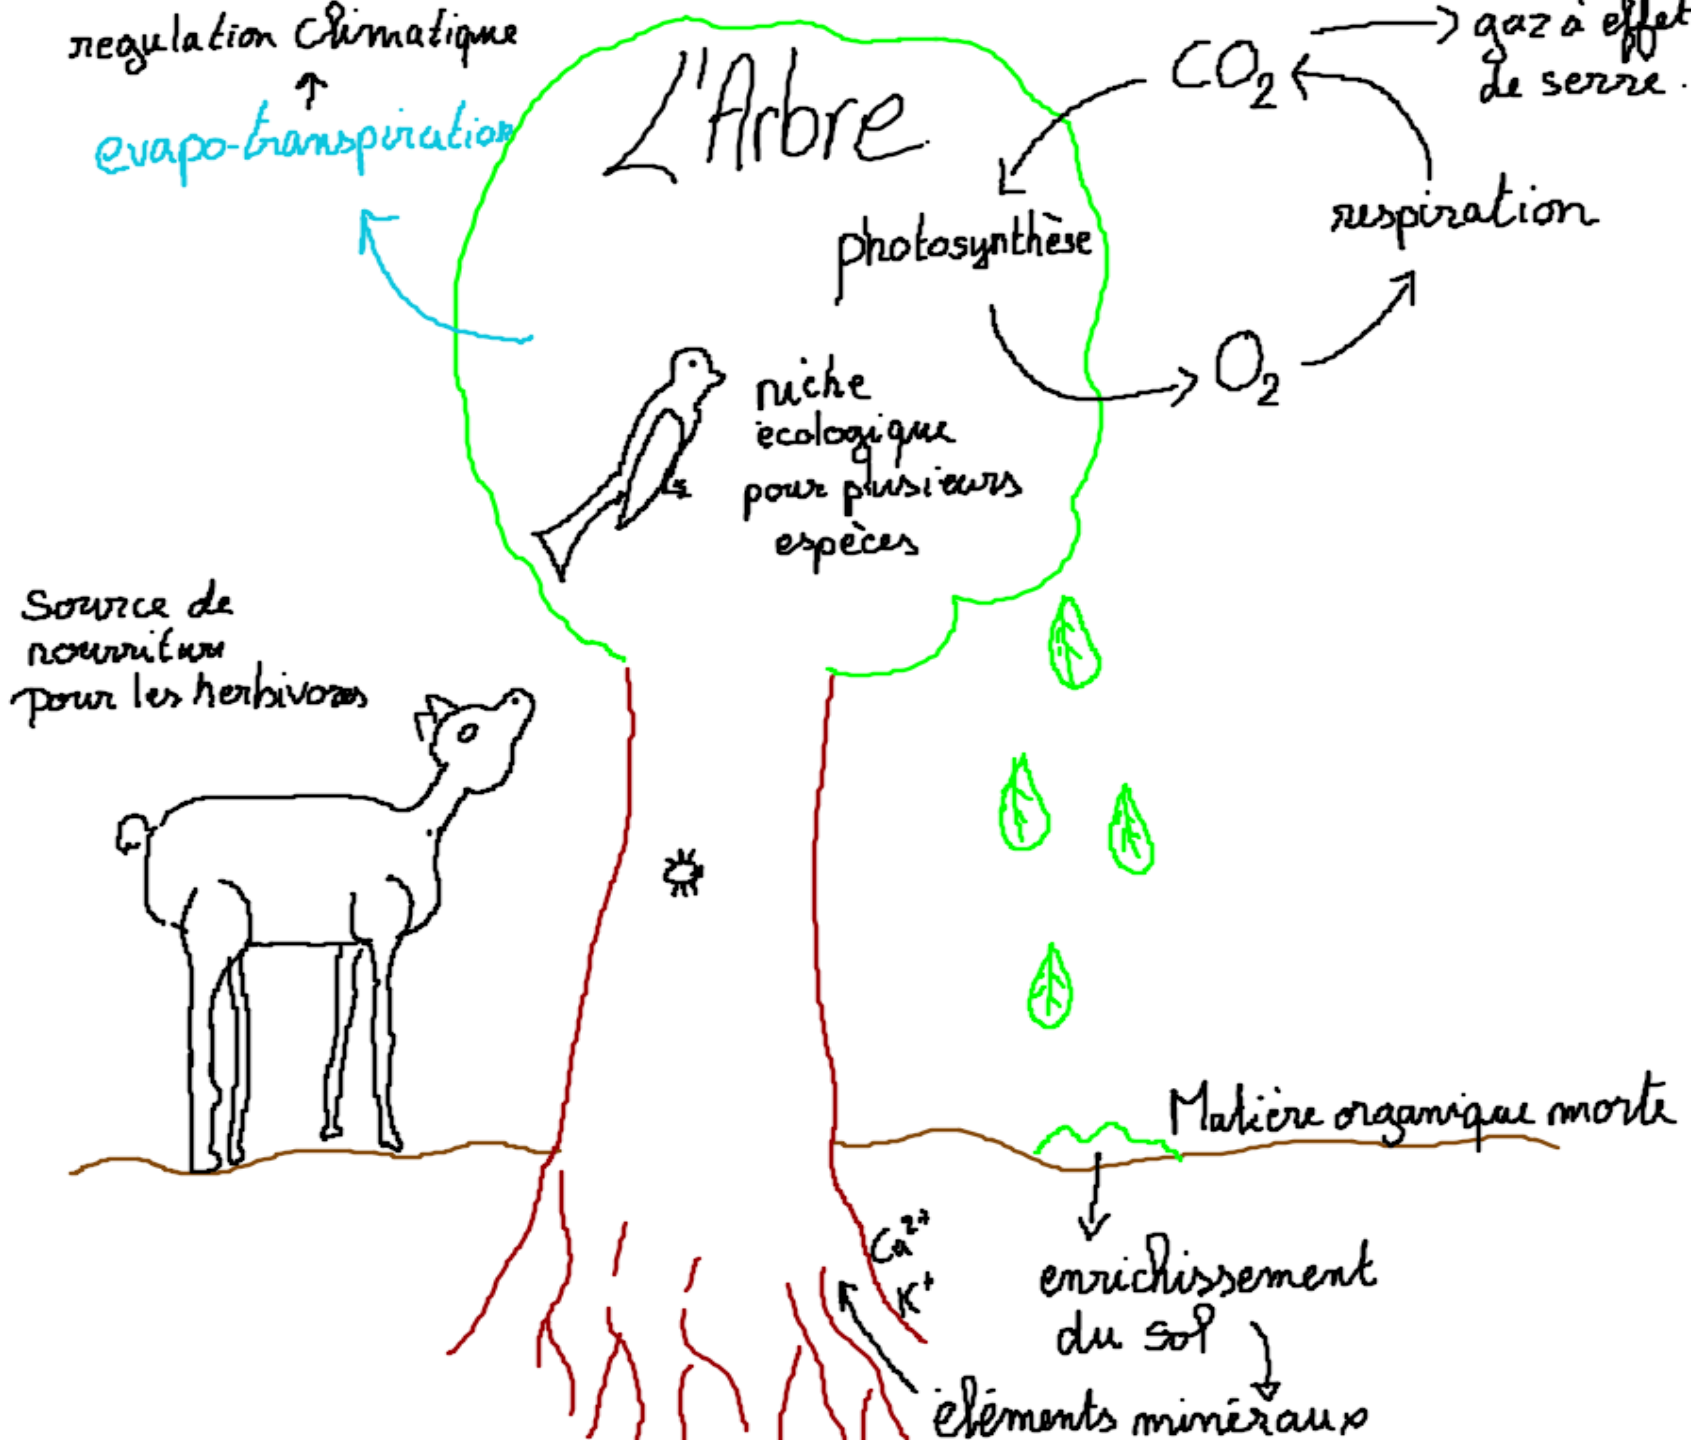 regulation climatique
evapo-transpiration
L'Arbre
CO2
gaz à effet
de serre.
photosynthèse
respiration
O2
niche
écologique
pour plusieurs
espèces
Source de
nourriture
pour les herbivores
Matière organique morte
Ca2+
K+
enrichissement
du sol
éléments minéraux